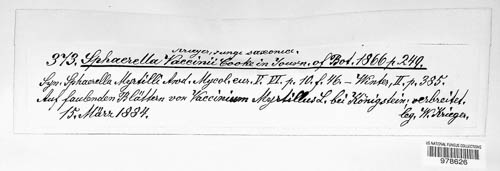 Krieger, Fungi saxonici.
373. Sphaerella Vaccinii Cooke in Journ. of Bot. 1866 p. 249.
Syn. Sphaerella Myrtilli Awd. Mycol. eur. V. VI. p. 10. f. 46. — Winter, II. p. 385.
Auf faulenden Blättern von Vaccinium Myrtillus L. bei Königstein; verbreitet.
15. März 1884. leg. W. Krieger.
US NATIONAL FUNGUS COLLECTIONS
978626